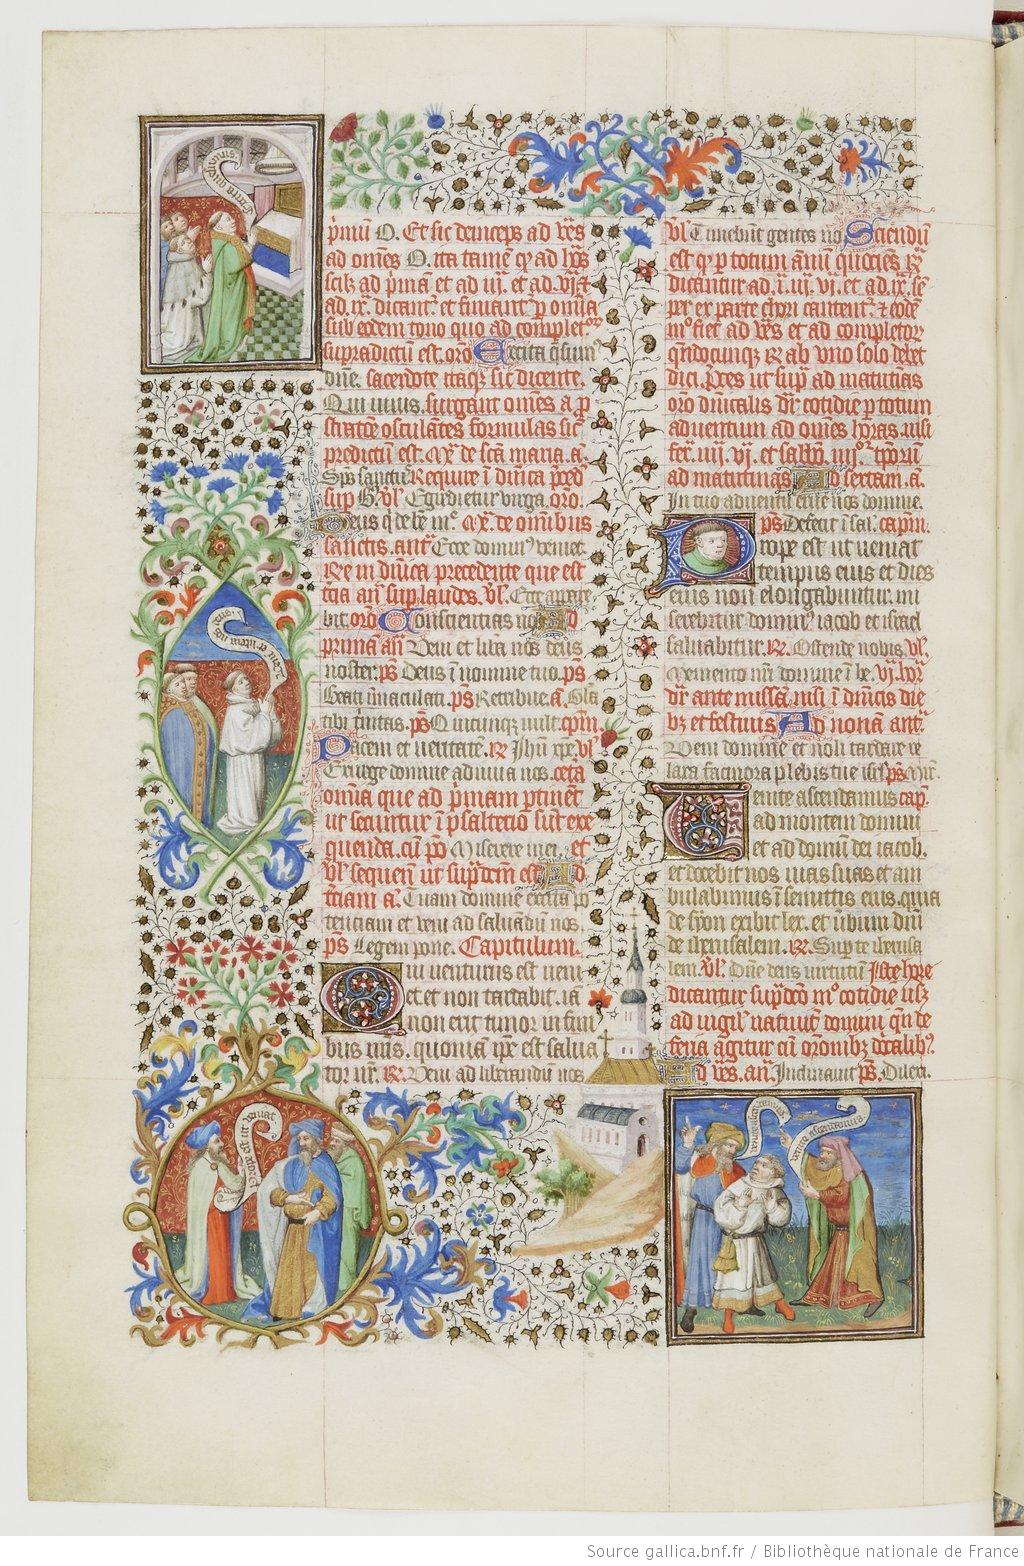 p̄mū O. Et sic deinceps ad v̄s
ad om̄es O. ita tamē ꝙ ad h̄as
ad ix. dicant᷑ et finiant᷑ ꝑ om̄ia
sub eodem tono quo ad complet᷑
supradictū est. or̄o Excita q̄sum᷑
dn̄e. sacerdote itaqꝫ sic dicente.
Qui viuis. surgant om̄es a ꝓ
stratōe osculātes formulas sic᷑
predictū est. de sc̄a maria. a.
Sp̄s sanctus Require ī dn̄ica p̄ced᷑
sup v̄l Egredietur virga. or̄o.
Deus q̄ de be. de om̄ibus
sanctis. ant᷑ Ecce domin᷑ veniet.
Re in dn̄ica precedente que est
t̄cia an̄ sup laudes. v̄l. Ecce appare
bit. or̄o Conscientias n̄o Ad
prima an̄ Veni et lib̄a nos deus
noster. p̄s Deus ī nomine tuo p̄s
Beati īmaculati. p̄s Retribue. a. Gl̄a
tibi t̄nitas. p̄s Quicunqꝫ uult. cp̄m
Pacem et veritatē. ꝶ Jhū xp̄e. v̄l
Exurge domine adiuua nos. cet̄a
om̄ia que ad p̄mam ꝑtinēt
ut secuntur ī psalterio sūt exe
quenda. cū p̄o Miserere mei. et
v̄l sequen̄ ut sup̄ d̄cm est Ad
t̄ciam a. Tuam domine excita po
tenciam et veni ad saluādū nos
p̄s Legem pone. Capitulum.
Qui venturus est veni
et et non tardabit. iā
non erit timor in fini
bus n̄ris. quoniā ip̄e est salua
tor n̄r. ꝶ. Veni ad liberandū nos
v̄l Timebunt gentes no Sciendū
est ꝙ ꝑ totum ānū quocies ꝶ
dicantur ad. i. iij. vi. et ad. ix. se᷑
per ex parte chori cantent᷑. ⁊ eodē
m̊ fiet ad v̄s et ad completor᷑
q̄ndocunqꝫ ꝶ ab uno solo debet
dici. P̄ces ut sup̄ ad matutinas
or̄o dn̄icalis d̄r cotidie ꝑ totum
aduentum ad om̄es horas. nisi
fer᷑. iiij. vj. et sab̄o. iiij. tꝑorū
ad matutinas Ad sextam. a.
In tuo aduentu erue nos domine.
p̄s Defecit ī sal. capm̄.
Prope est ut veniat
tempus eius et dies
eius non elongabuntur. mi
serebitur domin᷑ iacob et israel
saluabitur. ꝶ. Ostende nobis. v̄l.
Memento nr̄i domine ī be.
d̄r ante missā nisi ī dn̄icis die
bꝫ et festiuis Ad nonā ant᷑.
Veni domine et noli tardare re
laxa facinora plebis tue isr̄l. p̄s
Venite ascendamus cap̄.
ad montem domini
et ad domū dei iacob.
et docebit nos uias suas et am
bulabimus ī semitis eius. quia
de syon exibit lex. et ūbum dn̄i
de iherusalem. ꝶ. Super te iherusa
lem. v̄l. Dn̄e deus virtutū Iste hore
dicantur sup̄dc̄o m̊ cotidie usqꝫ
ad vigil᷑ natiuit᷑ domini q̄n de
feria agitur cū or̄onibꝫ d̄calibꝫ.
Ad v̄s. an̄. Inclinauit p̄s. Dilexi.
prope est ut veniat
venite ascendamus
Source gallica.bnf.fr / Bibliothèque nationale de France